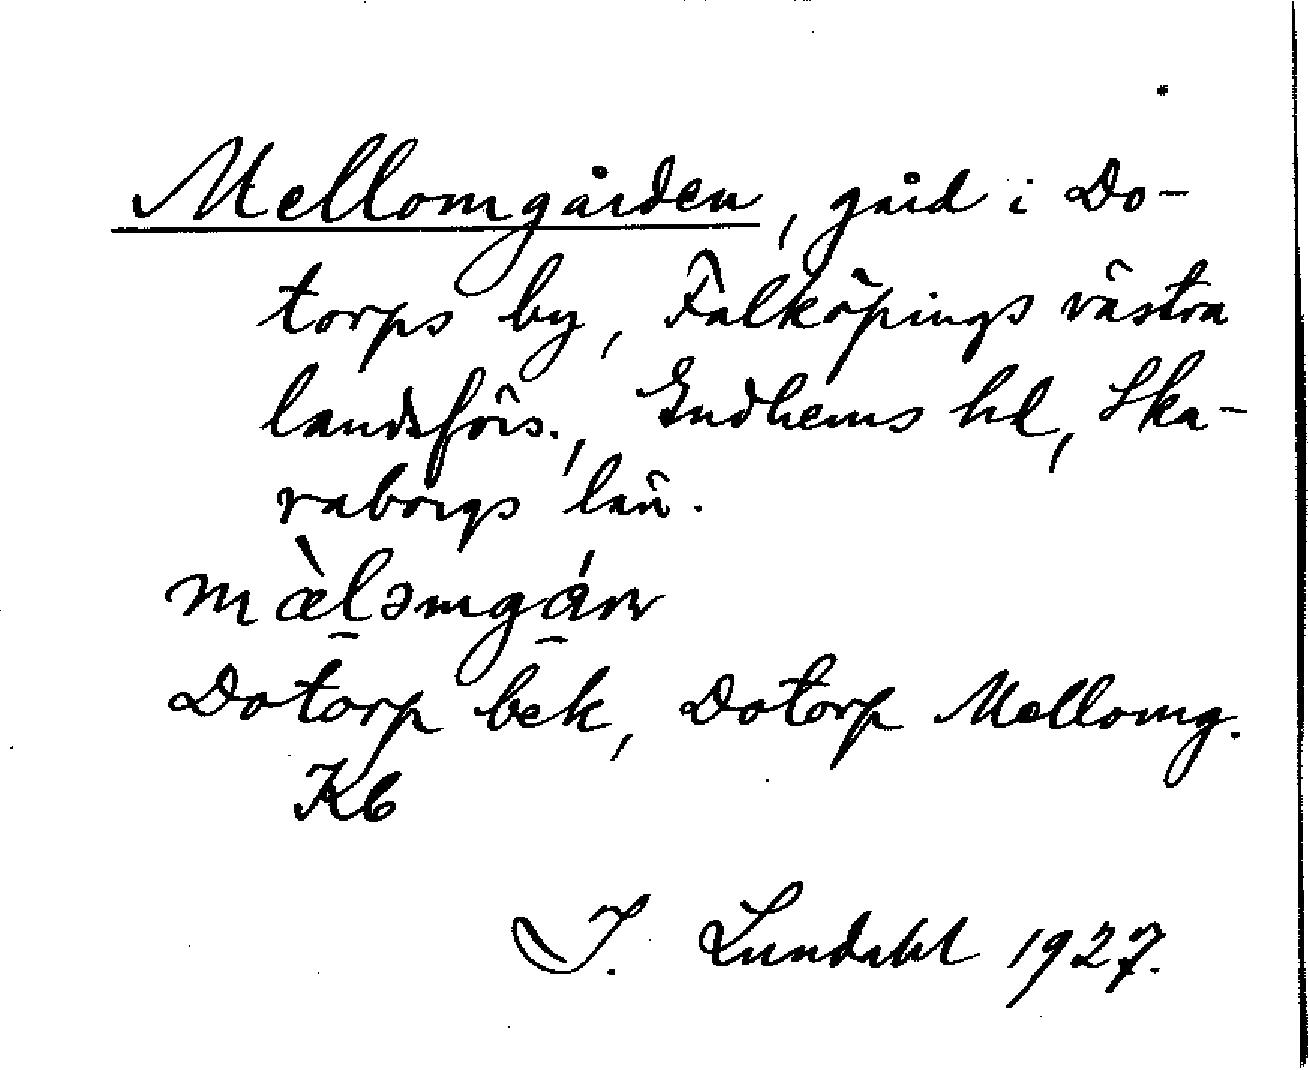 Mellomgården, gård i Do-
torps by, Falköpings västra
landsförs., Gudhems hd, Ska-
raborgs län.
mæ̀l̠əmgá̠ɳ
Dotorp bek, Dotorp Mellomg.
Kb
I. Lundahl 1927.